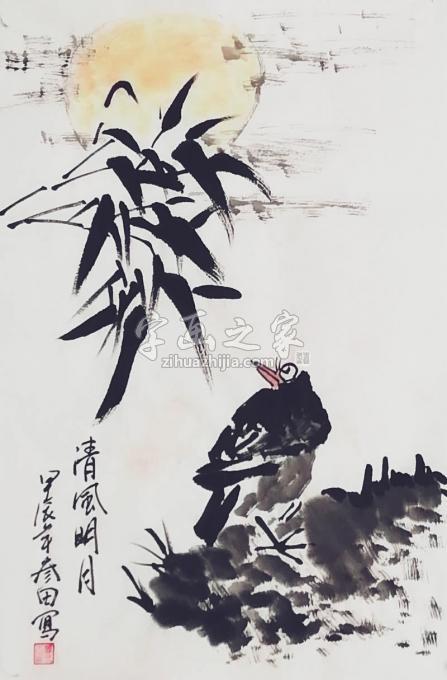 字画之家
zihuazhijia.com
清风明月
甲辰年彦田写